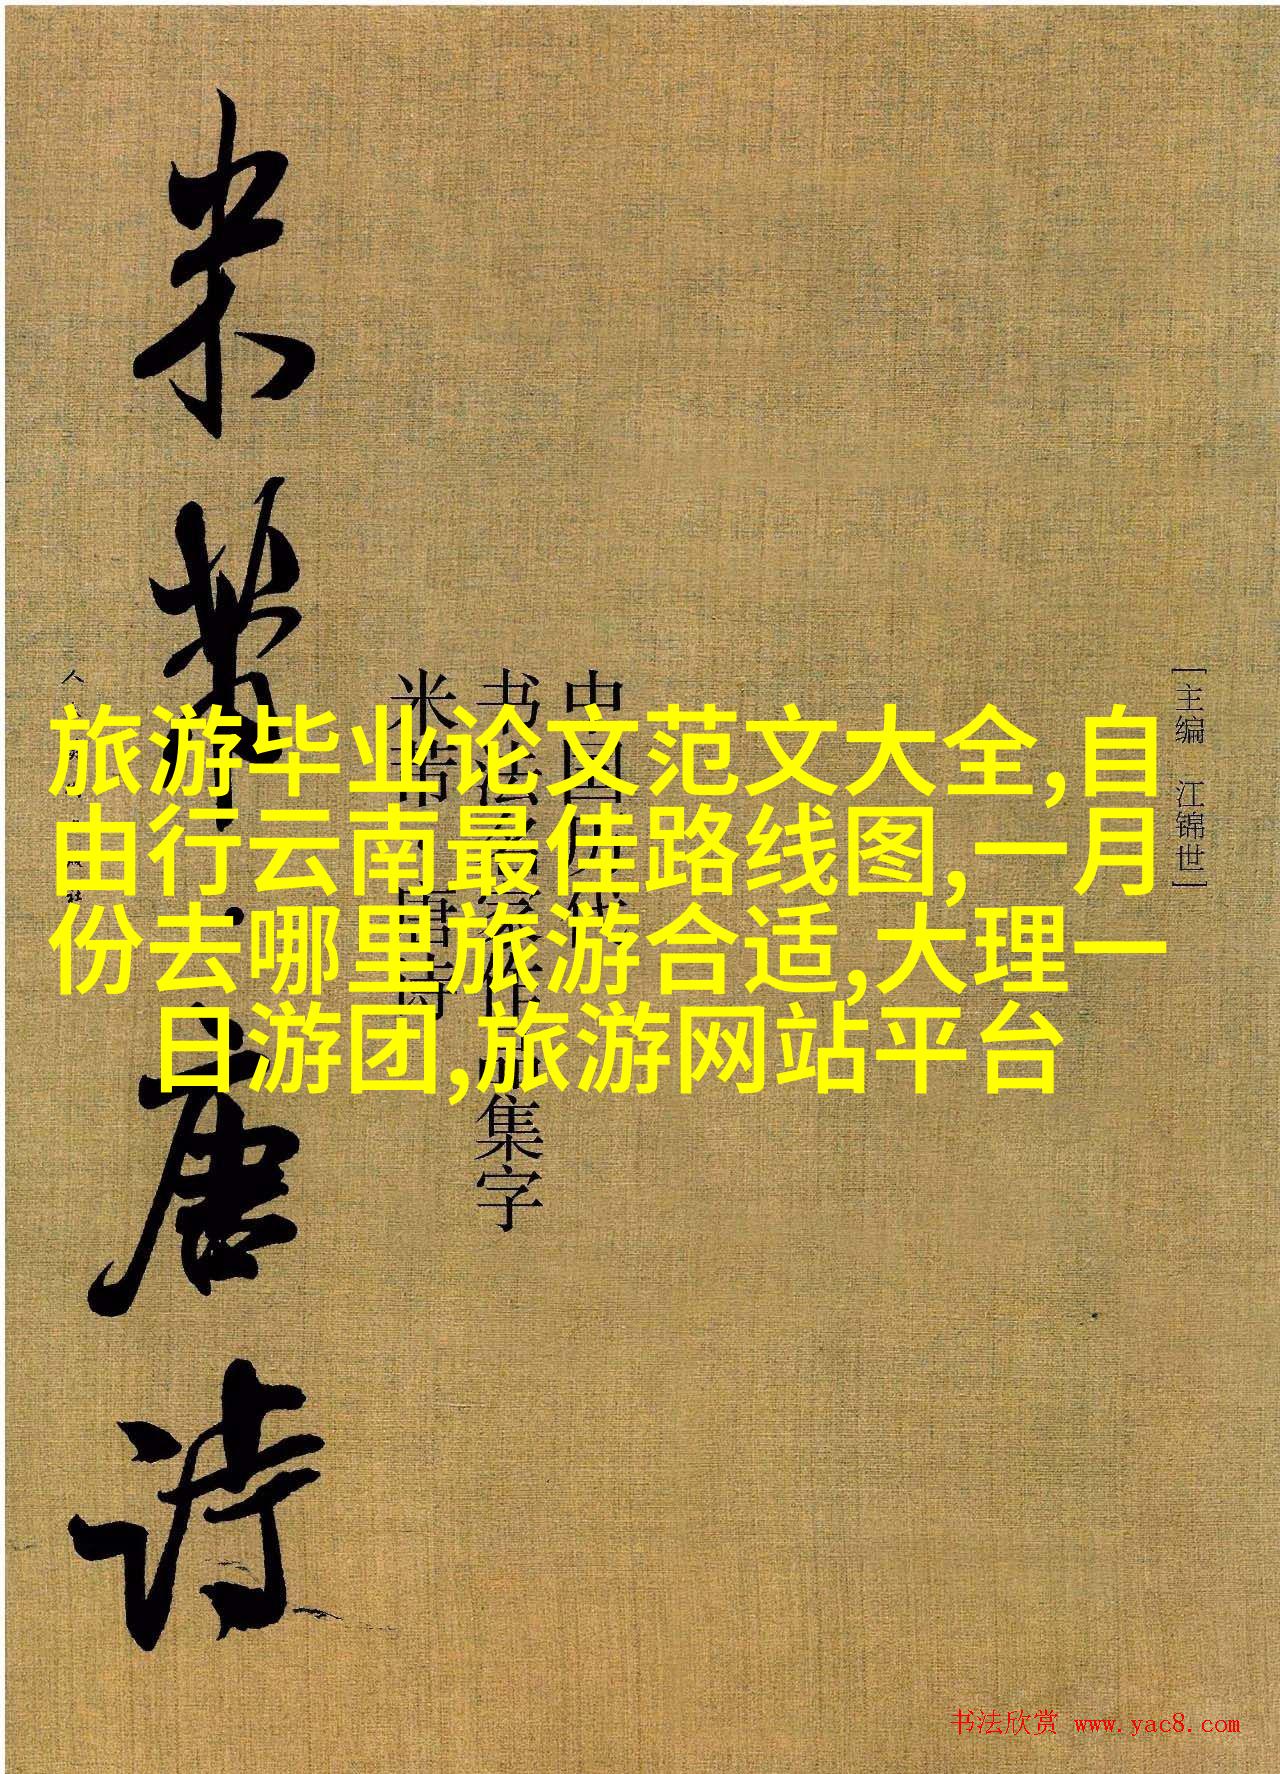 米芾·唐诗
中国历代
书法名家作品集字
米芾·唐诗
[主编 江锦世]
旅游毕业论文范文大全,自
由行云南最佳路线图,一月
份去哪里旅游合适,大理一
日游团,旅游网站平台
书法欣赏 www.yac8.com